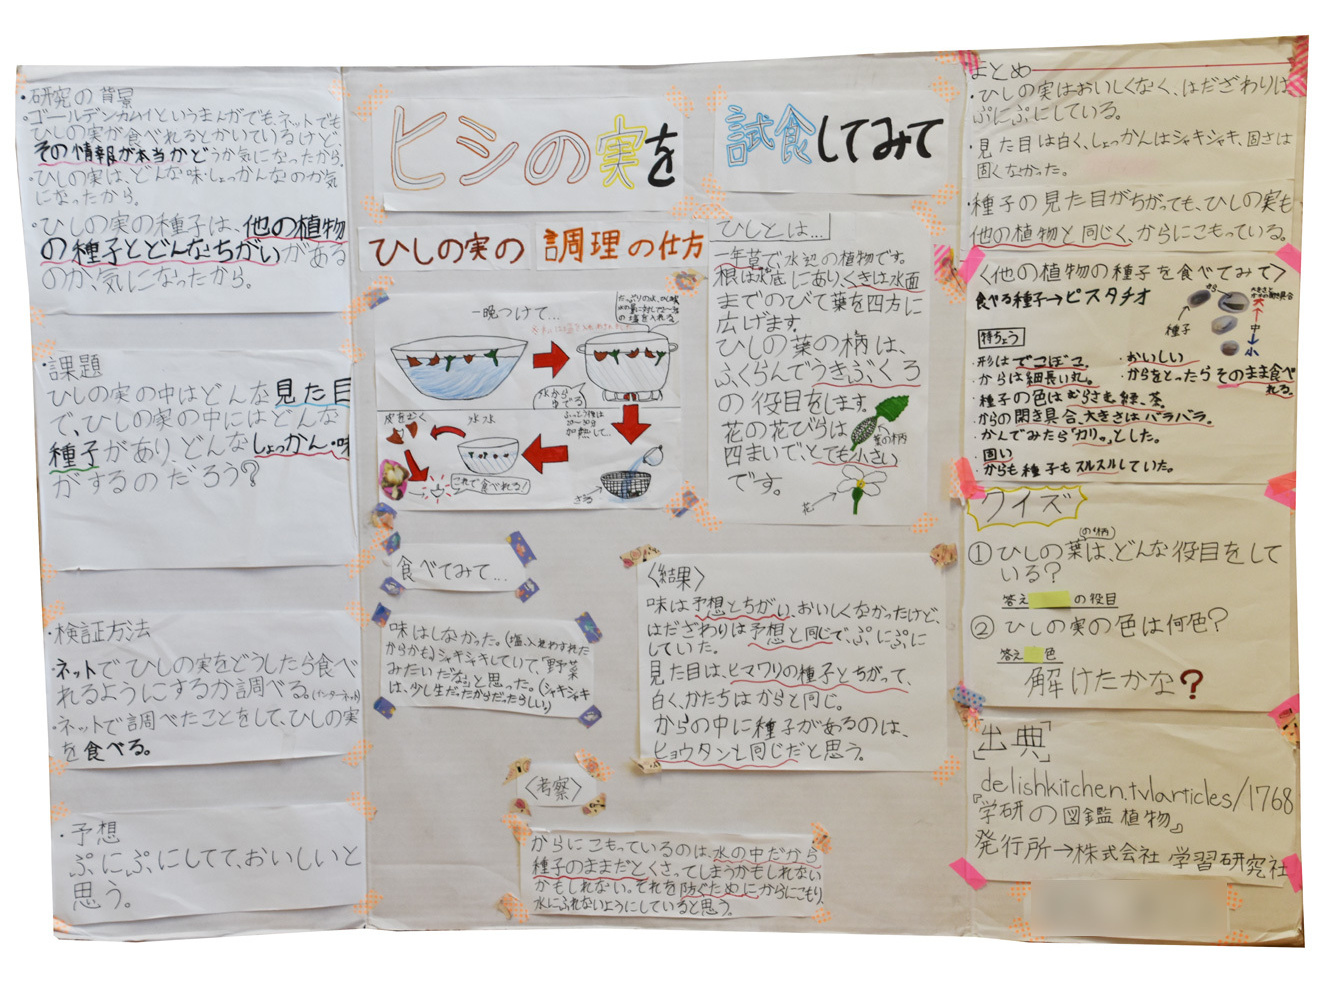 ヒシの実を
試食してみて
・研究の背景
・ゴールデンカムイというまんがでもネットでも
ひしの実が食べれるとかいているけど、
その情報が本当かどうか気になったから。
・ひしの実は、どんな味・しょっかんなのか気
になったから。
・ひしの実の種子は、他の植物
の種子とどんなちがいがある
のか、気になったから。
・課題
ひしの実の中はどんな見た目
で、ひしの実の中にはどんな
種子があり、どんなしょっかん・味
がするのだろう?
・検証方法
・ネットでひしの実をどうしたら食べ
れるようにするか調べる。(インターネット)
・ネットで調べたことをして、ひしの実
を食べる。
・予想
ぷにぷにしてて、おいしいと
思う。
ひしの実の調理の仕方
一晩つけて…
水から
ゆでる
ふっとう後は
加熱して…
ざる
水水
皮をむく
これで食べれる!
ひしとは…
一年草で、水辺の植物です。
根は水底にあり、くきは水面
までのびて葉を四方に
広げます。
ひしの葉の柄は、
ふくらんでうきぶくろ
の役目をします。
花の花びらは
四まいで、とても小さい
です。
葉の柄
花
食べてみて…
味はしなかった。(塩入れわすれた
からかも)シャキシャキしていて、「野菜
みたいだな」と思った。(シャキシャキ
は、少し生だったからだったらしい)
〈結果〉
味は予想とちがい、おいしくなかったけど、
はだざわりは予想と同じで、ぷにぷに
していた。
見た目は、ヒマワリの種子とちがって、
白く、かたちはからと同じ。
からの中に種子があるのは、
ヒョウタンと同じだと思う。
〈考察〉
からにこもっているのは、水の中だから
種子のままだとくさってしまうかもしれない
かもしれない。それを防ぐためにからにこもり、
水にふれないようにしていると思う。
まとめ
・ひしの実はおいしくなく、はだざわりは
ぷにぷにしている。
・見た目は白く、しょっかんはシャキシャキ、固さは
固くなかった。
・種子の見た目がちがっても、ひしの実も
他の植物と同じく、からにこもっている。
〈他の植物の種子を食べてみて〉
食べる種子→ピスタチオ
から
種子
大
中
小
特ちょう
・形はでこぼこ。
・からは細長い丸。
・種子の色はむらさき、緑、茶。
・からの開き具合、大きさはバラバラ。
・かんでみたら「カリッ」とした。
・固い
・からも種子もスルスルしていた。
・おいしい
・からをとったらそのまま食べ
れる。
クイズ
①ひしの葉(の柄)は、どんな役目をして
いる?
答え の役目
②ひしの実の色は何色?
答え 色
解けたかな?
「出典」
delishkitchen.tv/articles/1768
『学研の図鑑 植物』
発行所→株式会社 学習研究社